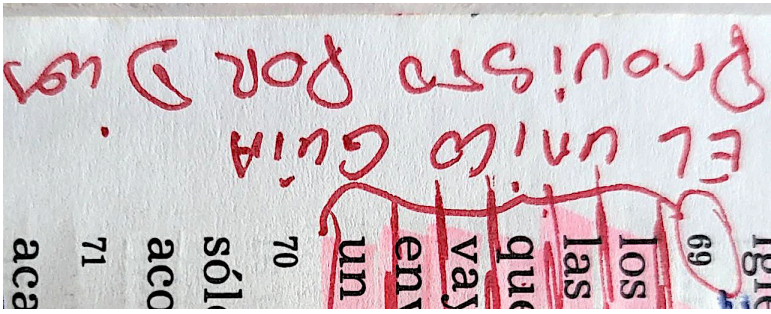 EL UNICO GUIA
Provisto POR Dios
igle
69
los
las
que
vay
env
un
70
sól
aco
71
aca